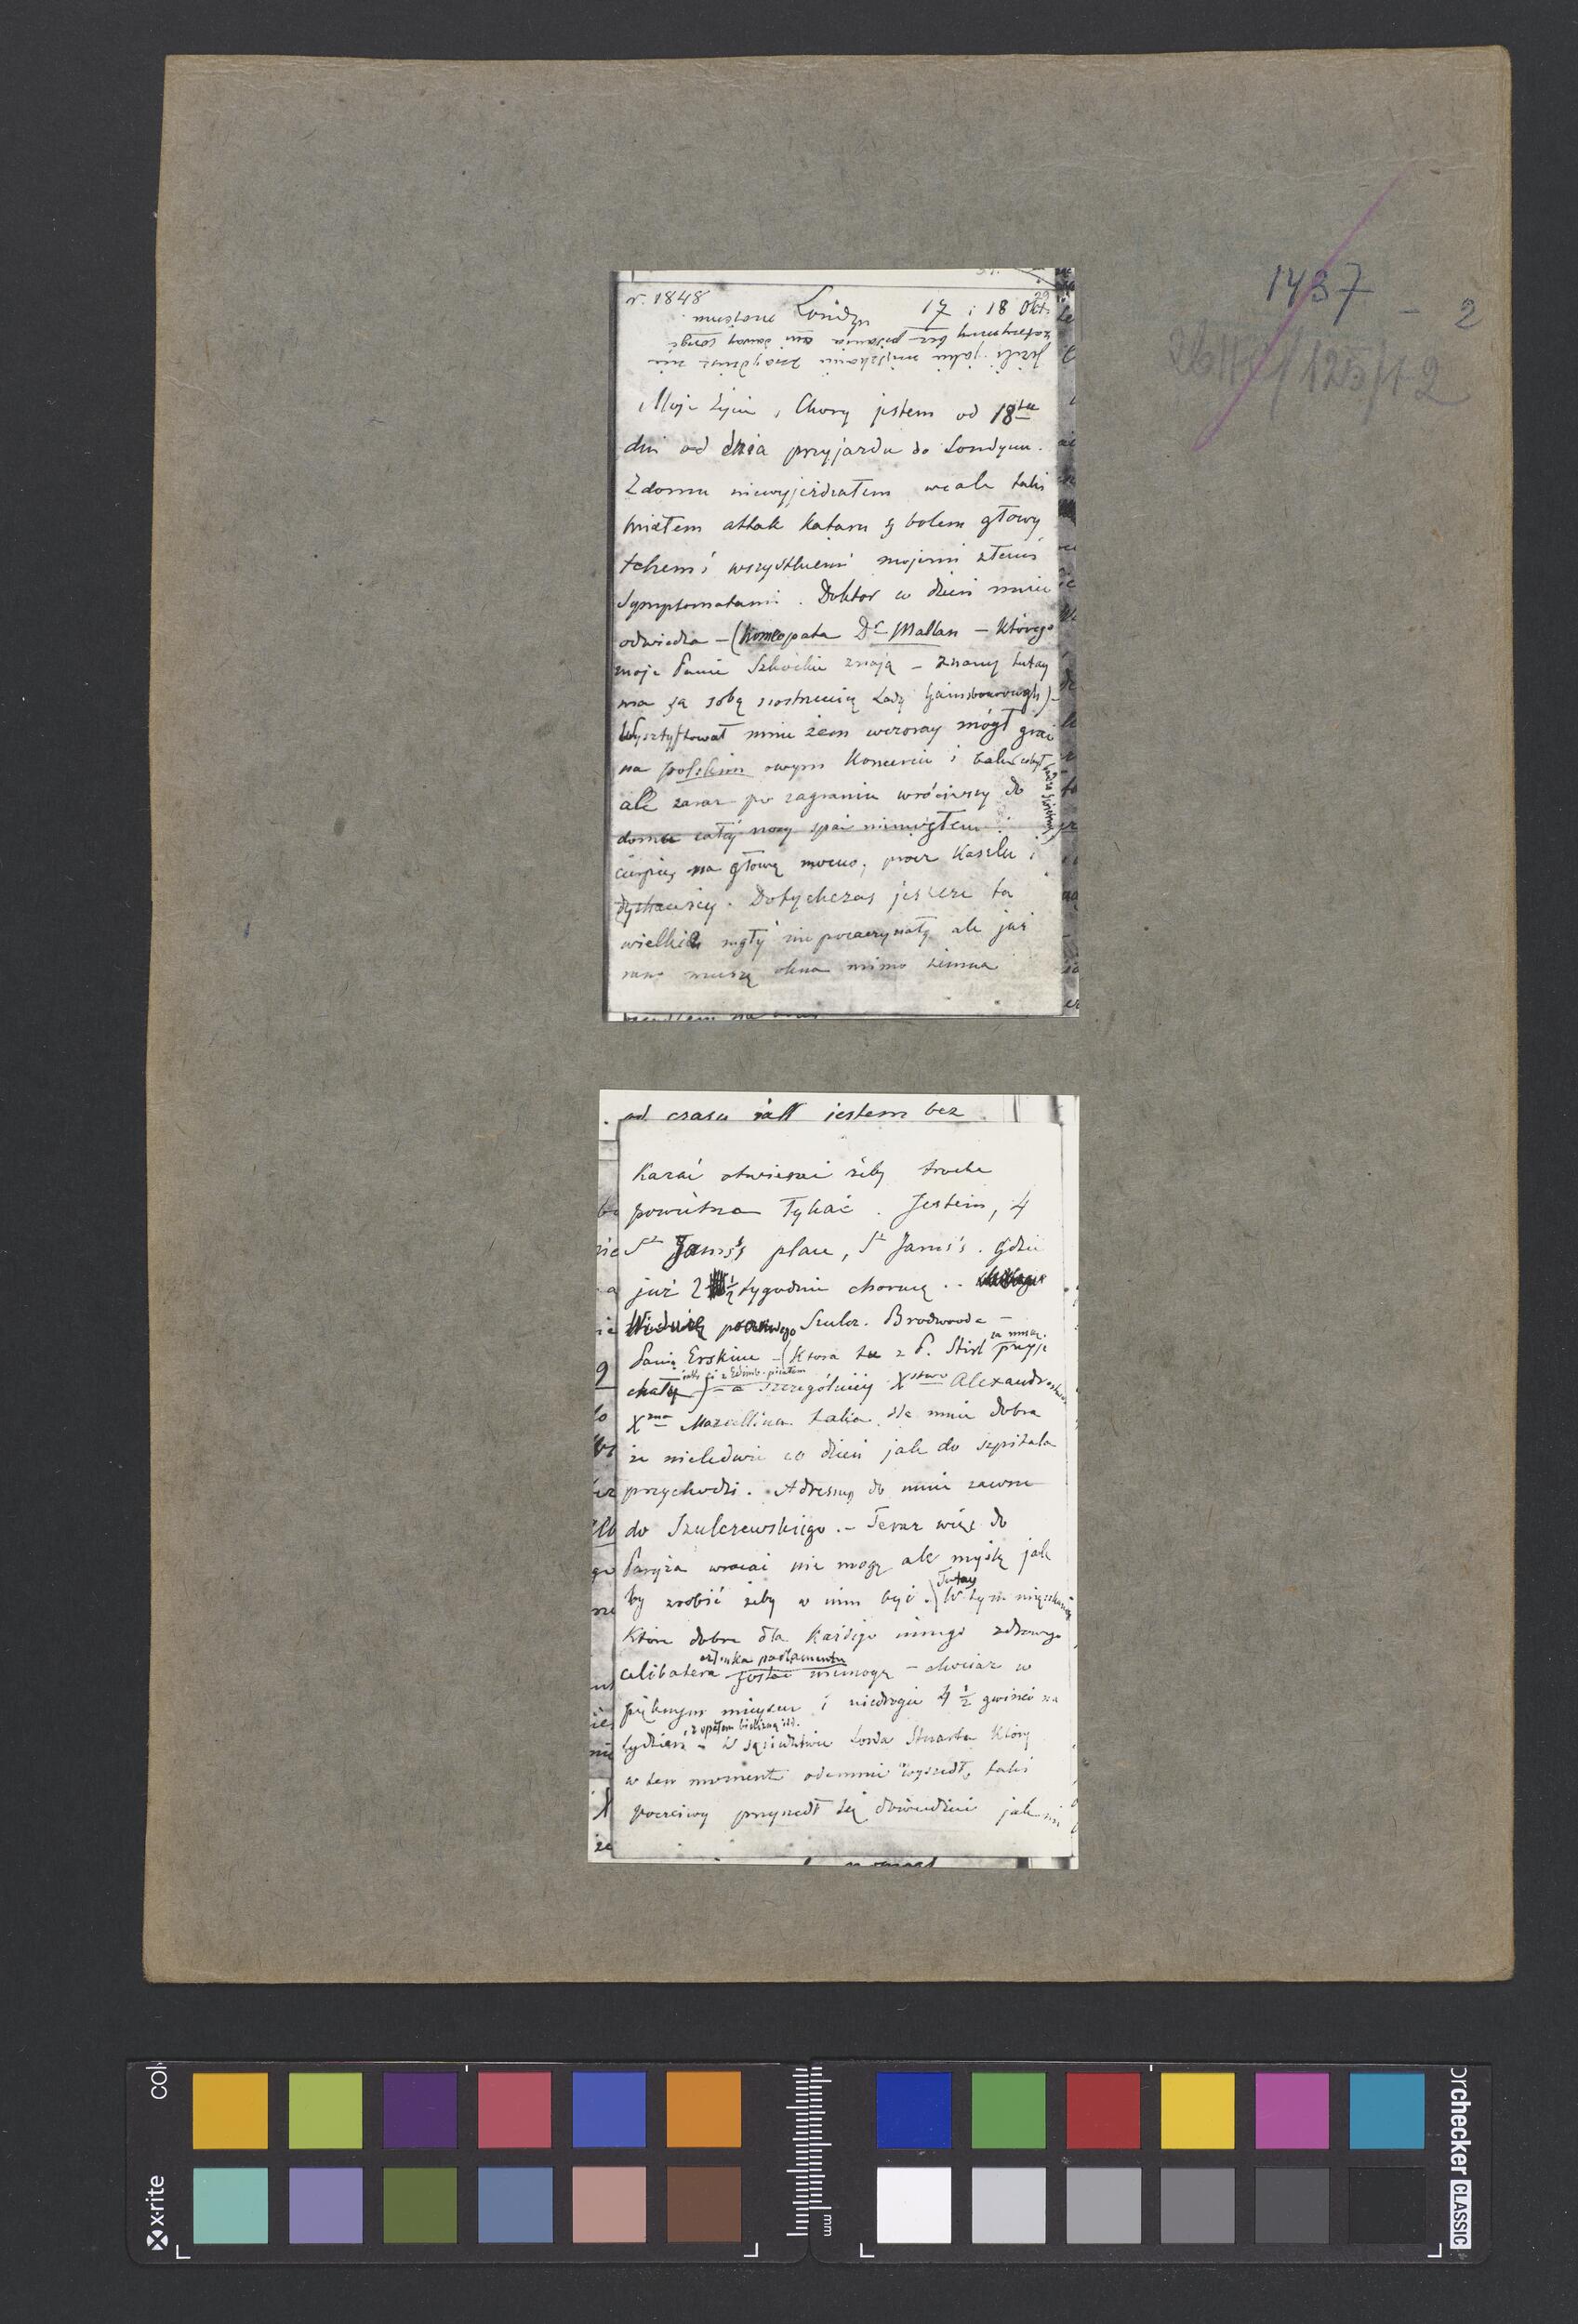 1437 - 2
r. 1848
Londyn 17 i 18 Okt.
Jeżeli jakie mieszkanie znajdziesz nie
zatrzymuj bez pisania ani dawaj
Moje życie, Chory jestem od 18tu
dni od dnia przyjazdu do Londynu.
Z domu niewyjeżdżałem wcale taki
miałem attak kataru z bolem głowy
tchem i wszystkiemi mojemi złemi
symptomatami. Doktor co dzień mnie
odwiedza – (homeopata Dr Mallan – którego
moje Panie Szkockie znają – znany tutay
ma za sobą siostrzenicę Lady Gainsborough) –
Wysztyftował mnie żem wczoray mógł grać
na polskim owym Koncercie i balu
ale zaraz po zagraniu wróciwszy do
domu całéj nocy spać niemogłem
cierpię na głowę mocno, prócz kaszlu i
dychawicy. Dotychczas jeszcze ta
wielkie mgły nie poczynały ale już
rano muszę okna mimo zimna
od czasu jestem bez
Kazać otwierać żeby troche
powietrza łykać. Jestem, 4
St James's place, St James's. Gdzie
już 2 ½ tygodnie choruię..
Widuię poczciwego Szulcz. Brodwooda –
Panią Erskine – (Ktora tu z P. Stirl za mną przyje
chały jakk ci z Edimb. pisałem) – a szczególniéj Xstwo Alexandrostwo
Xżna Marcellina taka dla mnie dobra
że nieledwie co dzień jak do szpitala
przychodzi. Adressuj do mnie zawsze
do Szulczewskiego. – Teraz więc do
Paryża wracać nie mogę ale myślę jak
by zrobić żeby w nim być. Tutay W tym mięszkaniu
Które dobre dla Każdego innego zdrowego
celibatera członka parlamentu zostać niemogę – chociaż w
pięknym mieyscu i niedrogie 4 ½ gwineé na
tydzień z opałem bielizną itd. – w sąsiedztwie Lorda Stuarta Który
w ten moment odemnie wyszedł, taki
poczciwy przyszedł się dowiedzieć jak mi
x-rite
colorchecker CLASSIC
mm